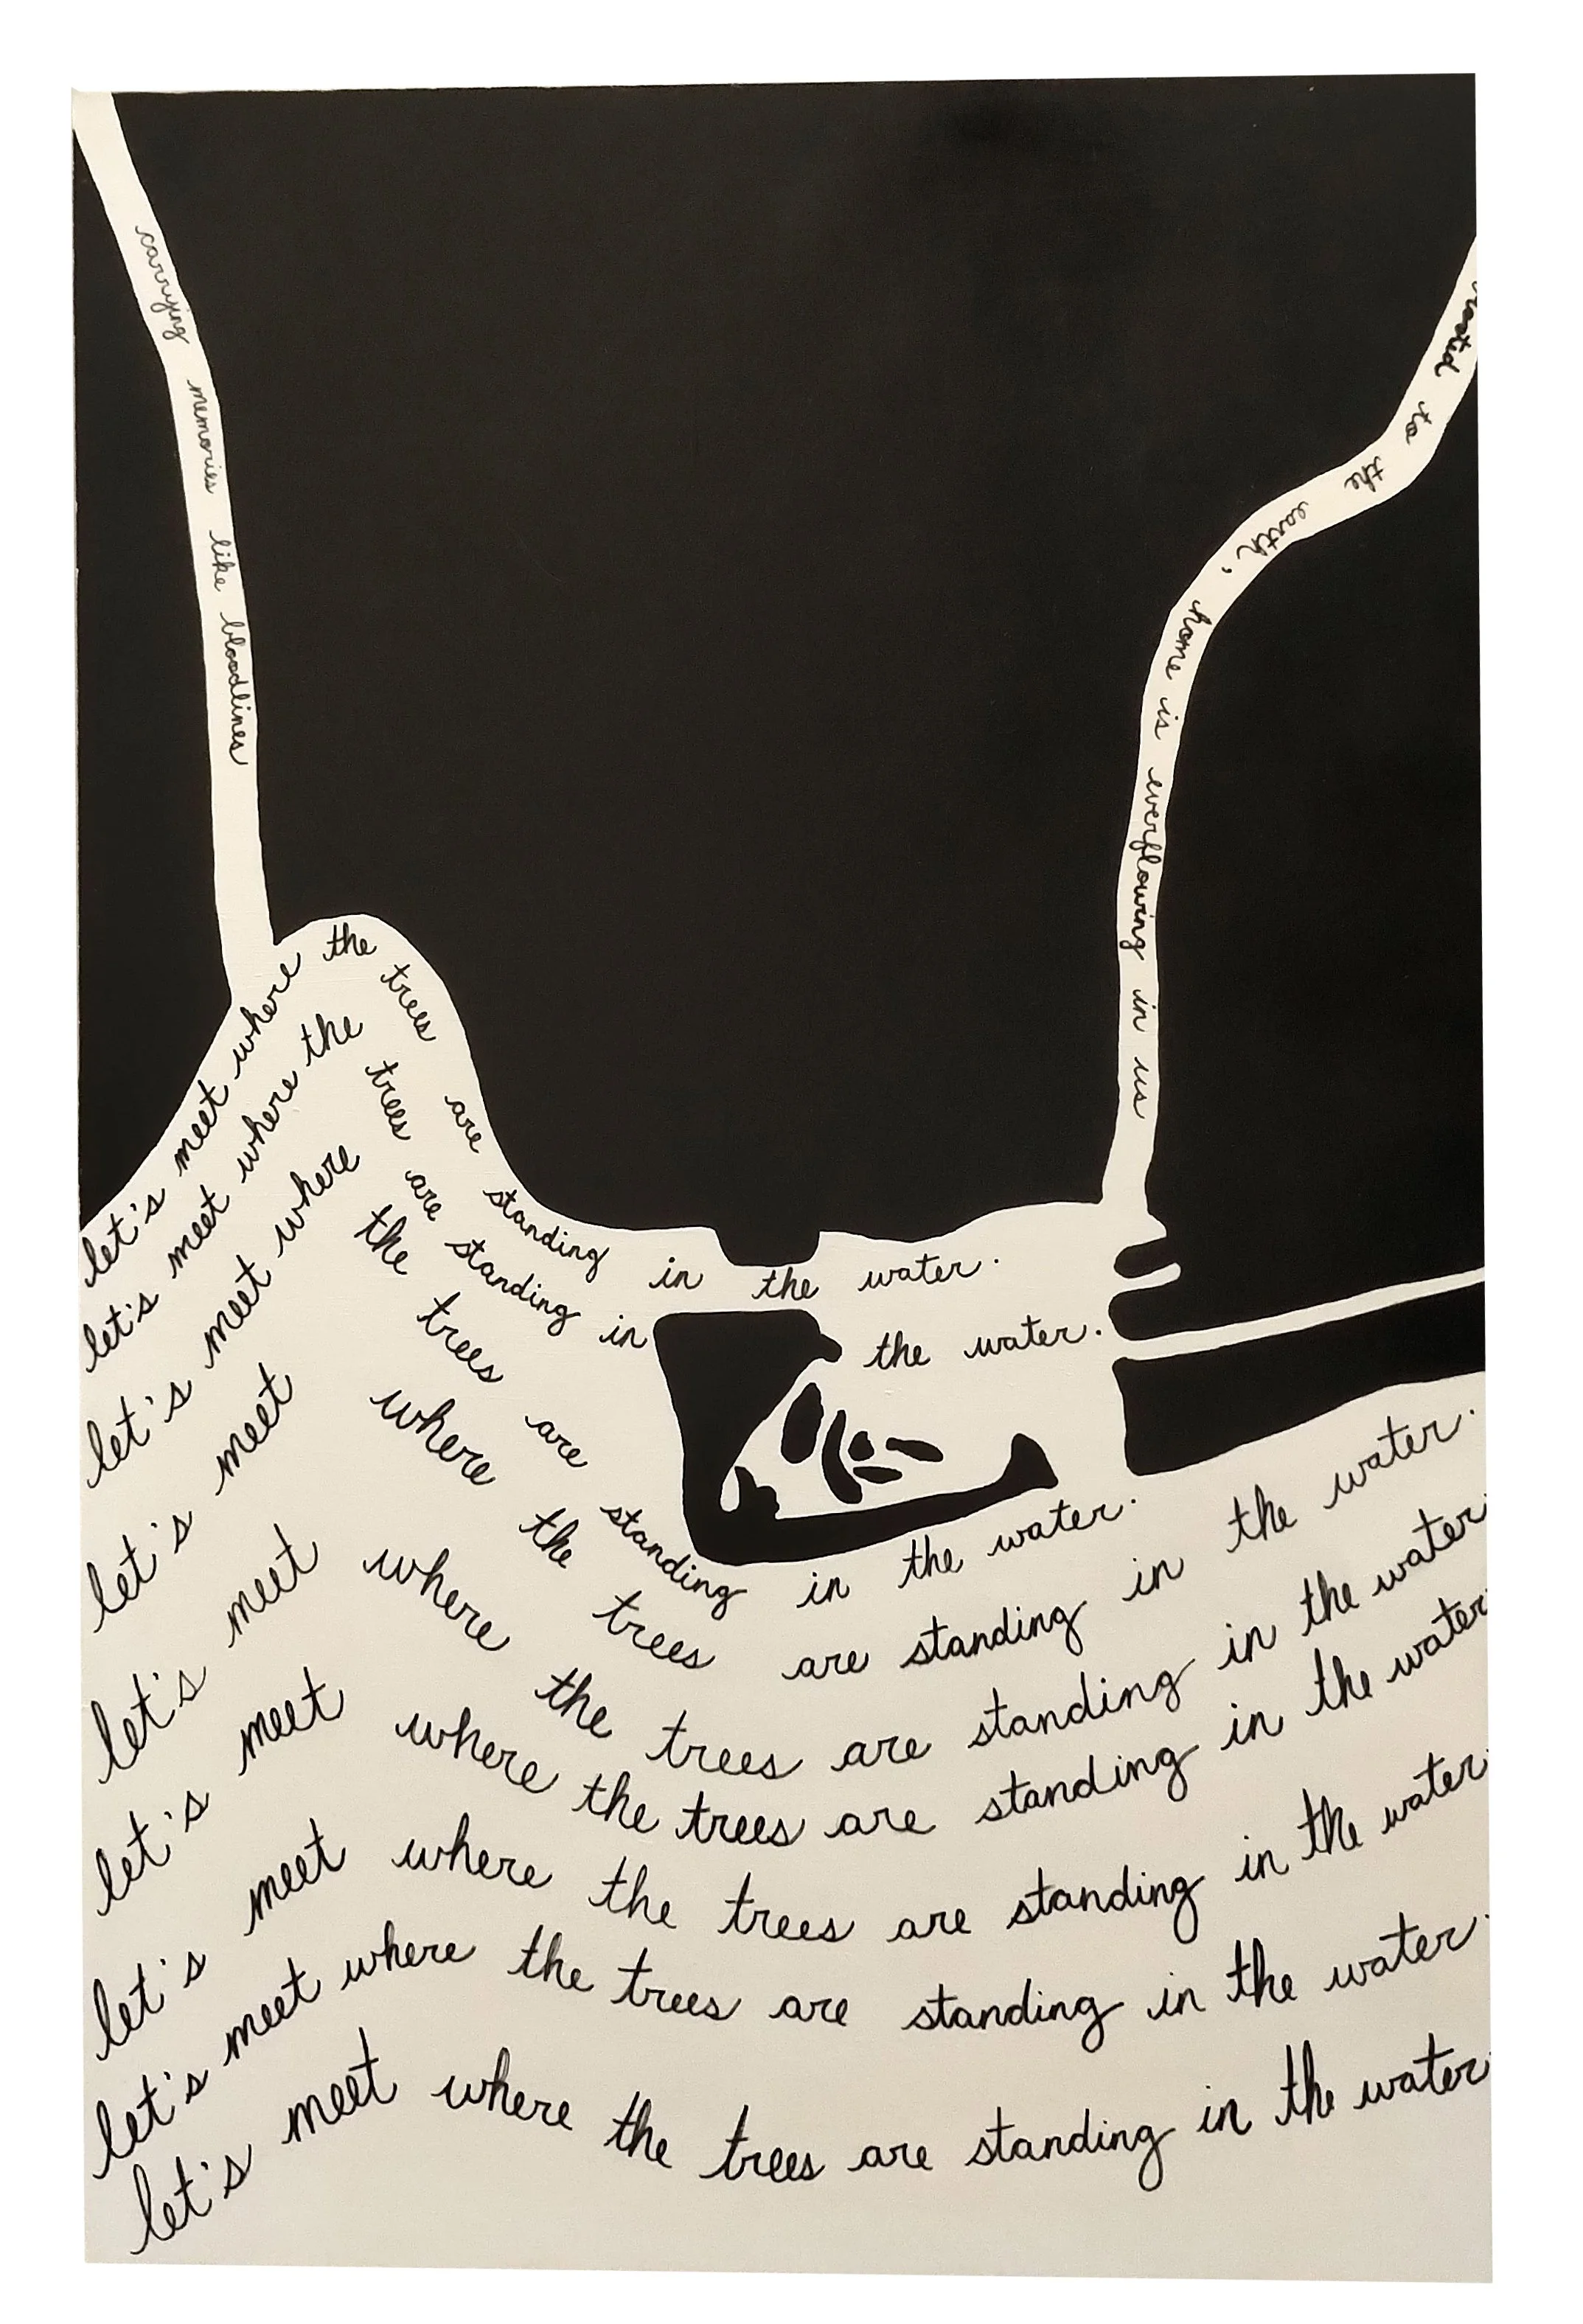 carrying memories like bloodlines
rooted to the earth, home is everflowing in us
let's meet where the trees are standing in the water.
let's meet where the trees are standing in the water.
let's meet where the trees are standing in the water.
let's meet where the trees are standing in the water.
let's meet where the trees are standing in the water.
let's meet where the trees are standing in the water.
let's meet where the trees are standing in the water.
let's meet where the trees are standing in the water.
let's meet where the trees are standing in the water.